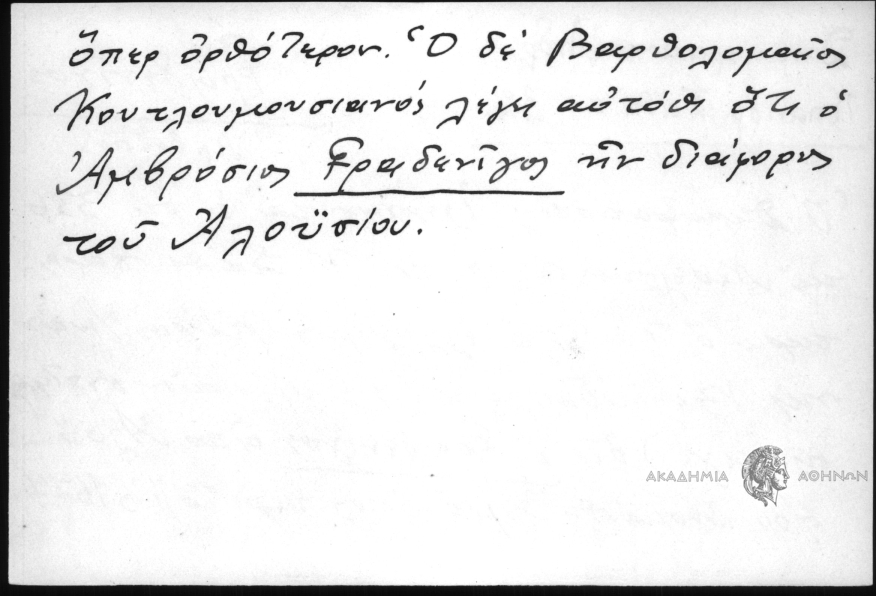 ὅπερ ὀρθότερον. Ὁ δὲ Βαρθολομαῖος
Κουτλουμουσιανός λέγει αὐτόθι ὅτι ὁ
Ἀμβρόσιος Γραδενῖγος ἦν διάφορος
τοῦ Ἀλοϋσίου.
ΑΚΑΔΗΜΙΑ ΑΘΗΝΩΝ